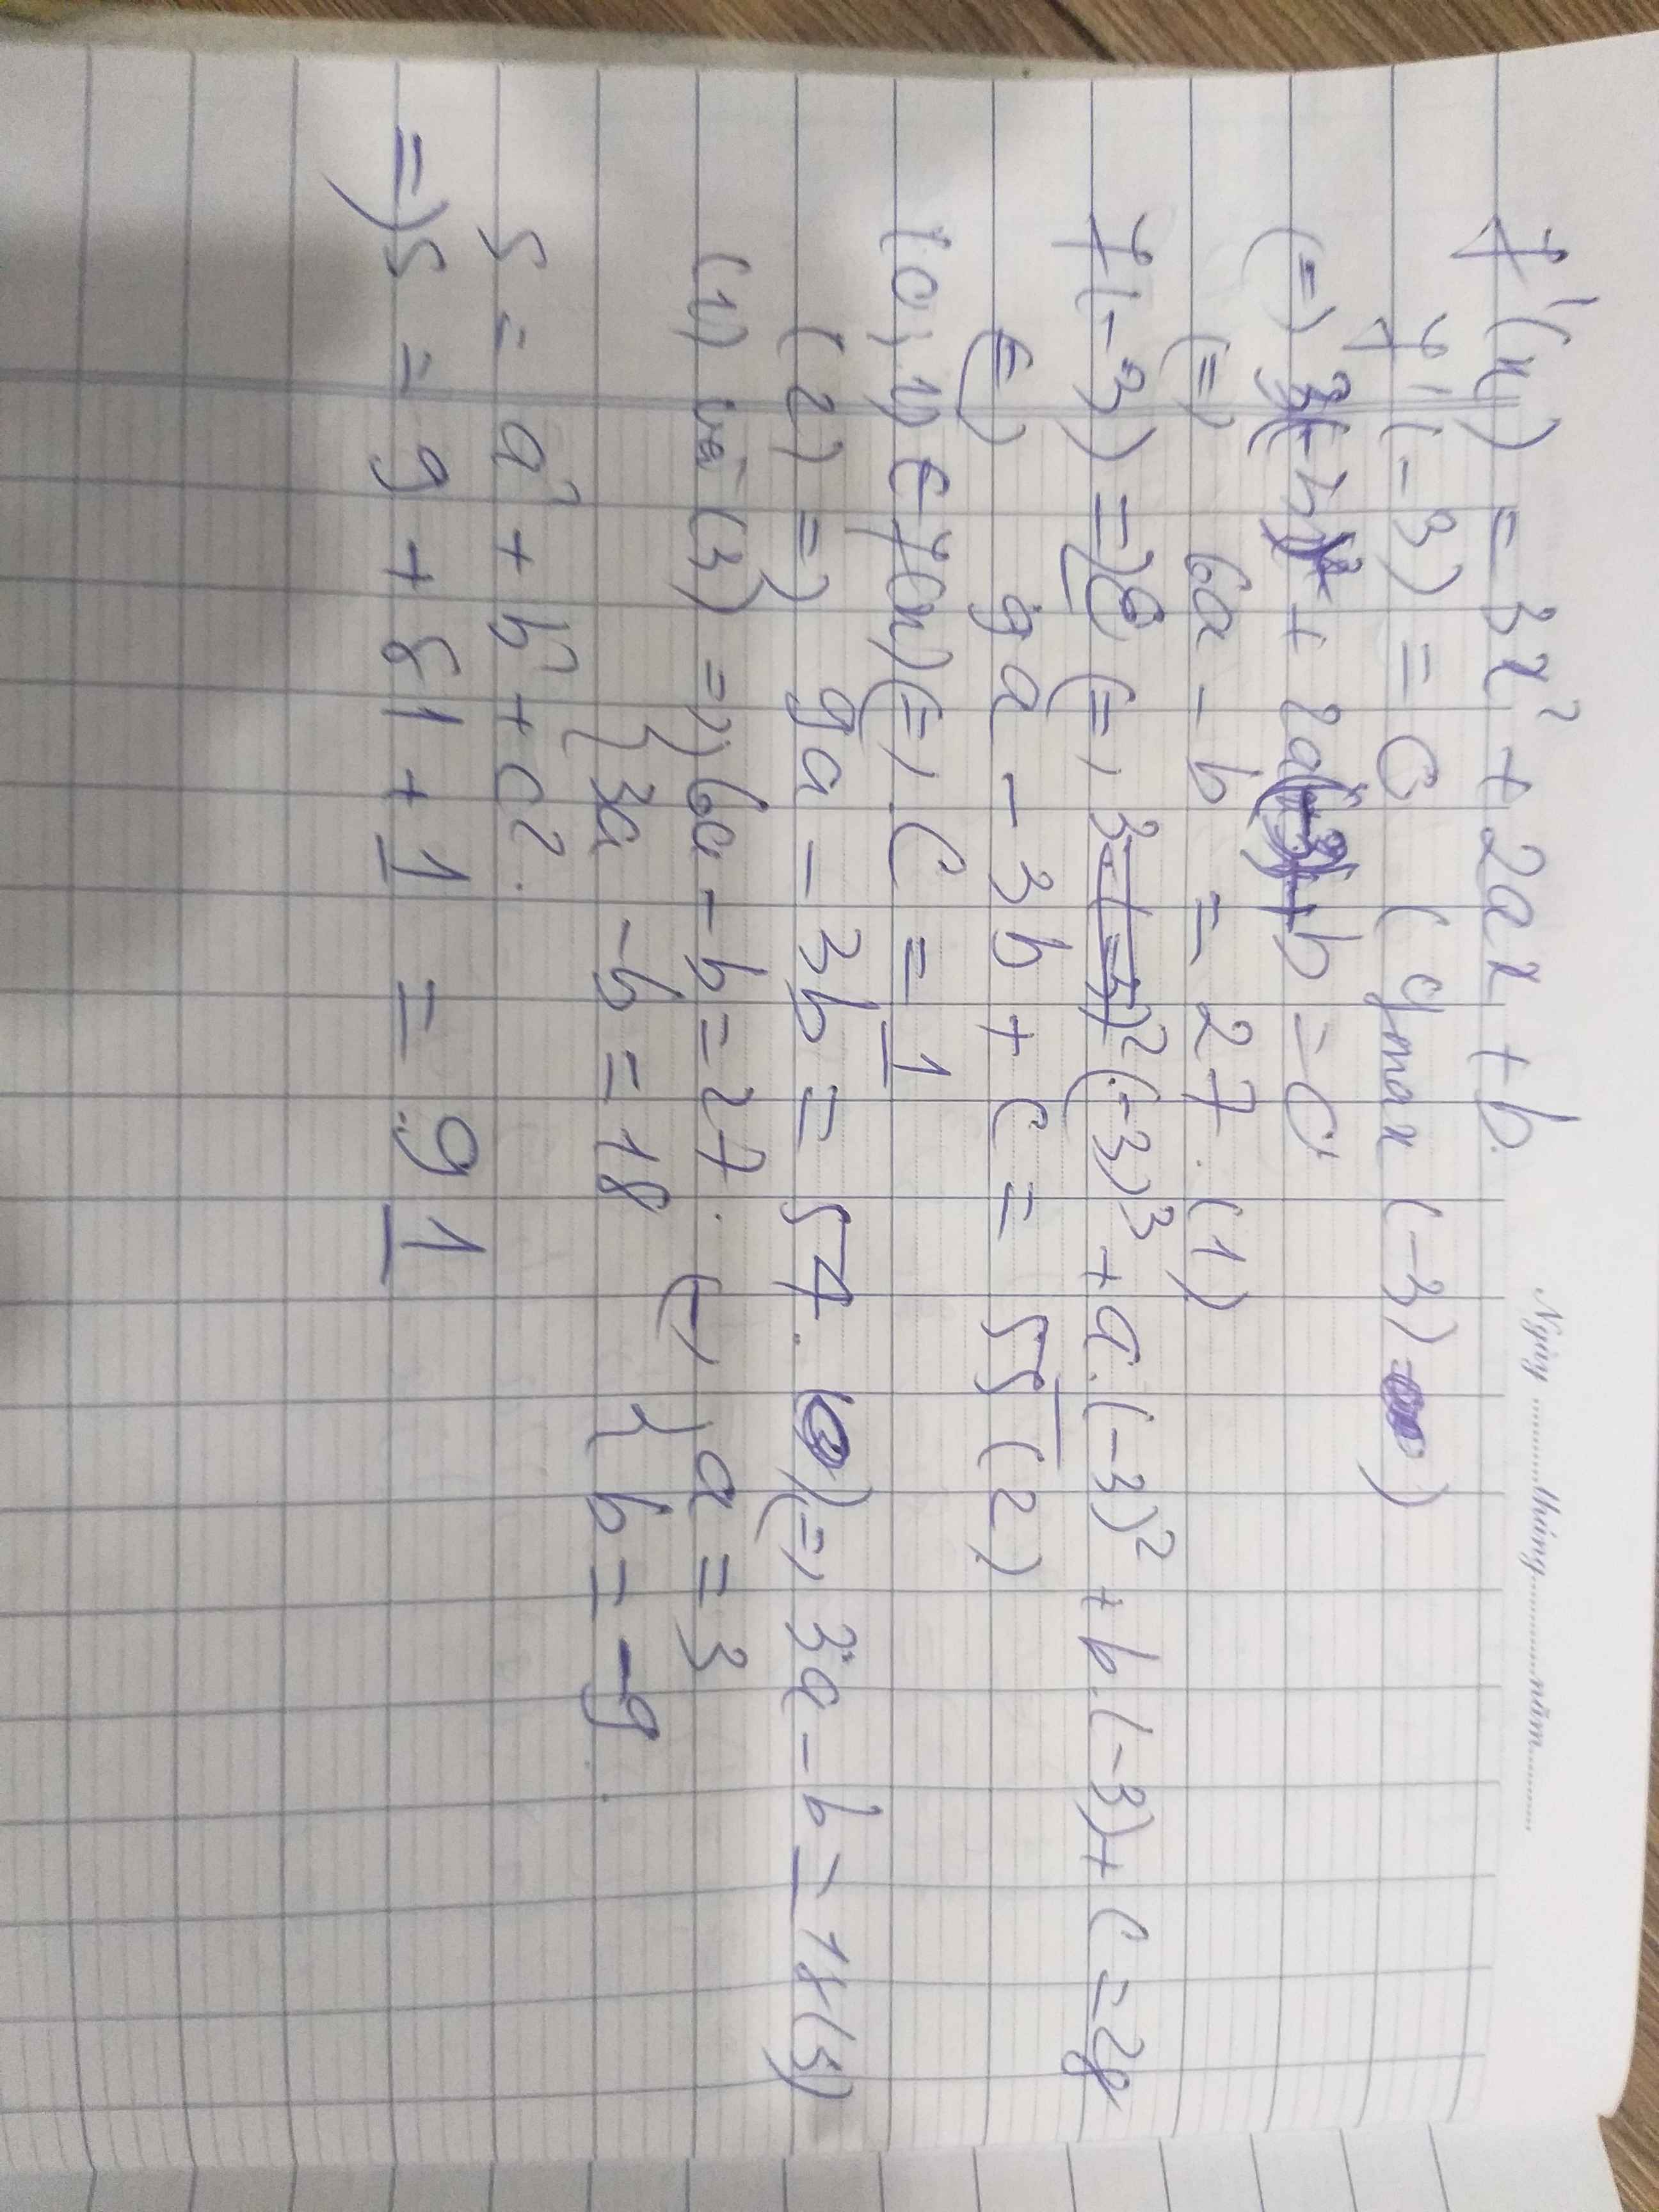 Ngày ............tháng............năm............
f'(x) = 3x² + 2ax + b.
f'(-3) = 0 (ymax (-3) )
(=) 3(-3)² + 2a(-3)+b = 0.
(=) 6a - b = 27. (1)
f(-3) = 28 (=) (-3)³ + a.(-3)² + b.(-3) + c = 28
(=) 9a - 3b + c = 55 (2)
(0;1) ∈ f(x) (=) c = 1
(2) =) 9a - 3b = 54. (=) 3a - b = 18 (3)
(1) và (3) =) { 6a - b = 27. (=) { a = 3
3a - b = 18 b = -9.
S = a² + b² + c².
=) S = 9 + 81 + 1 = 91